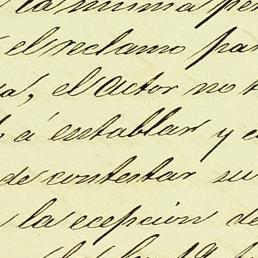 la misma pe
el reclamo par
a, el actor no t
á entablar y c
de contestar su
la ecepción de